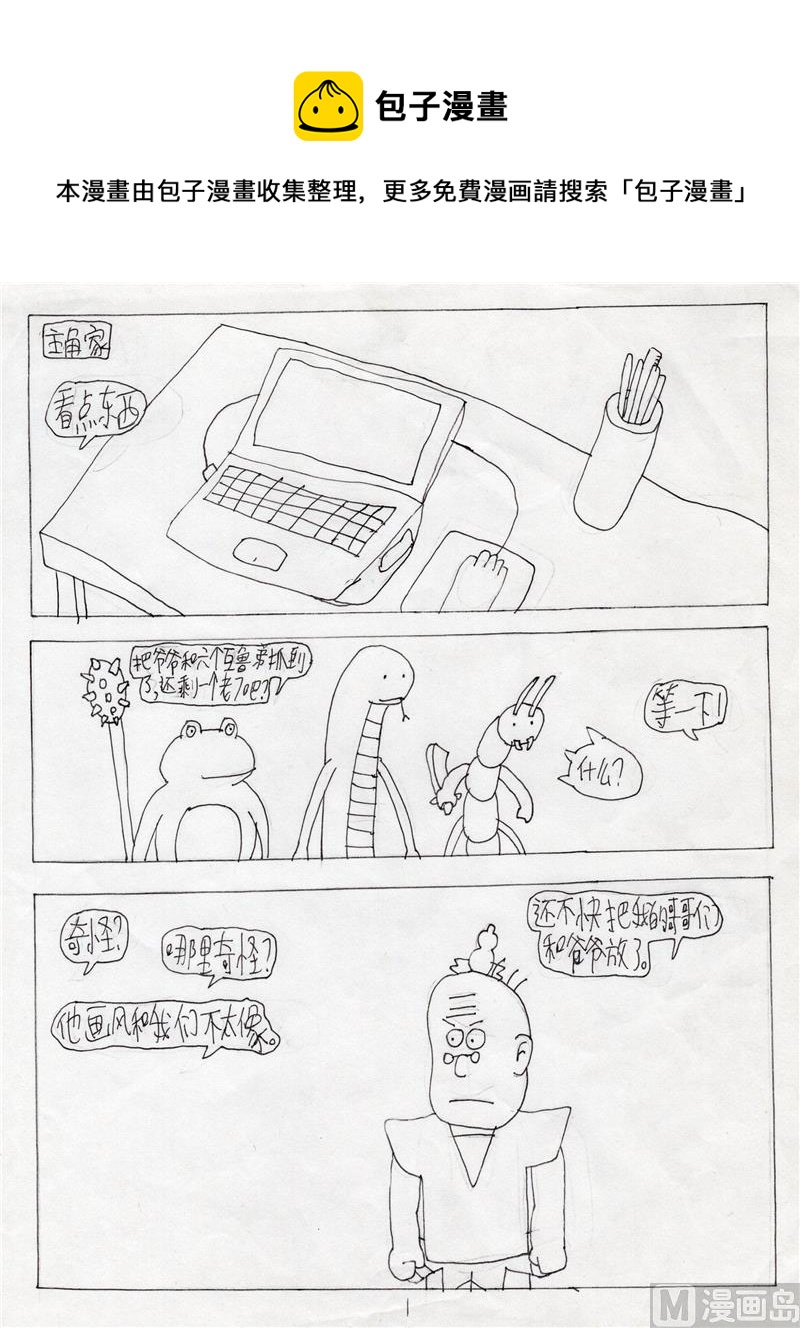 包子漫畫
本漫畫由包子漫畫收集整理，更多免費漫画請搜索「包子漫畫」
主角家
看点东西
把爷爷和六个互鲁旁抓到
了，还剩一个老7吧？
等一下！
什么？
还不快把我的哥哥们
和爷爷放了。
奇怪？
哪里奇怪？
他画风和我们不太像。
1
M 漫画岛